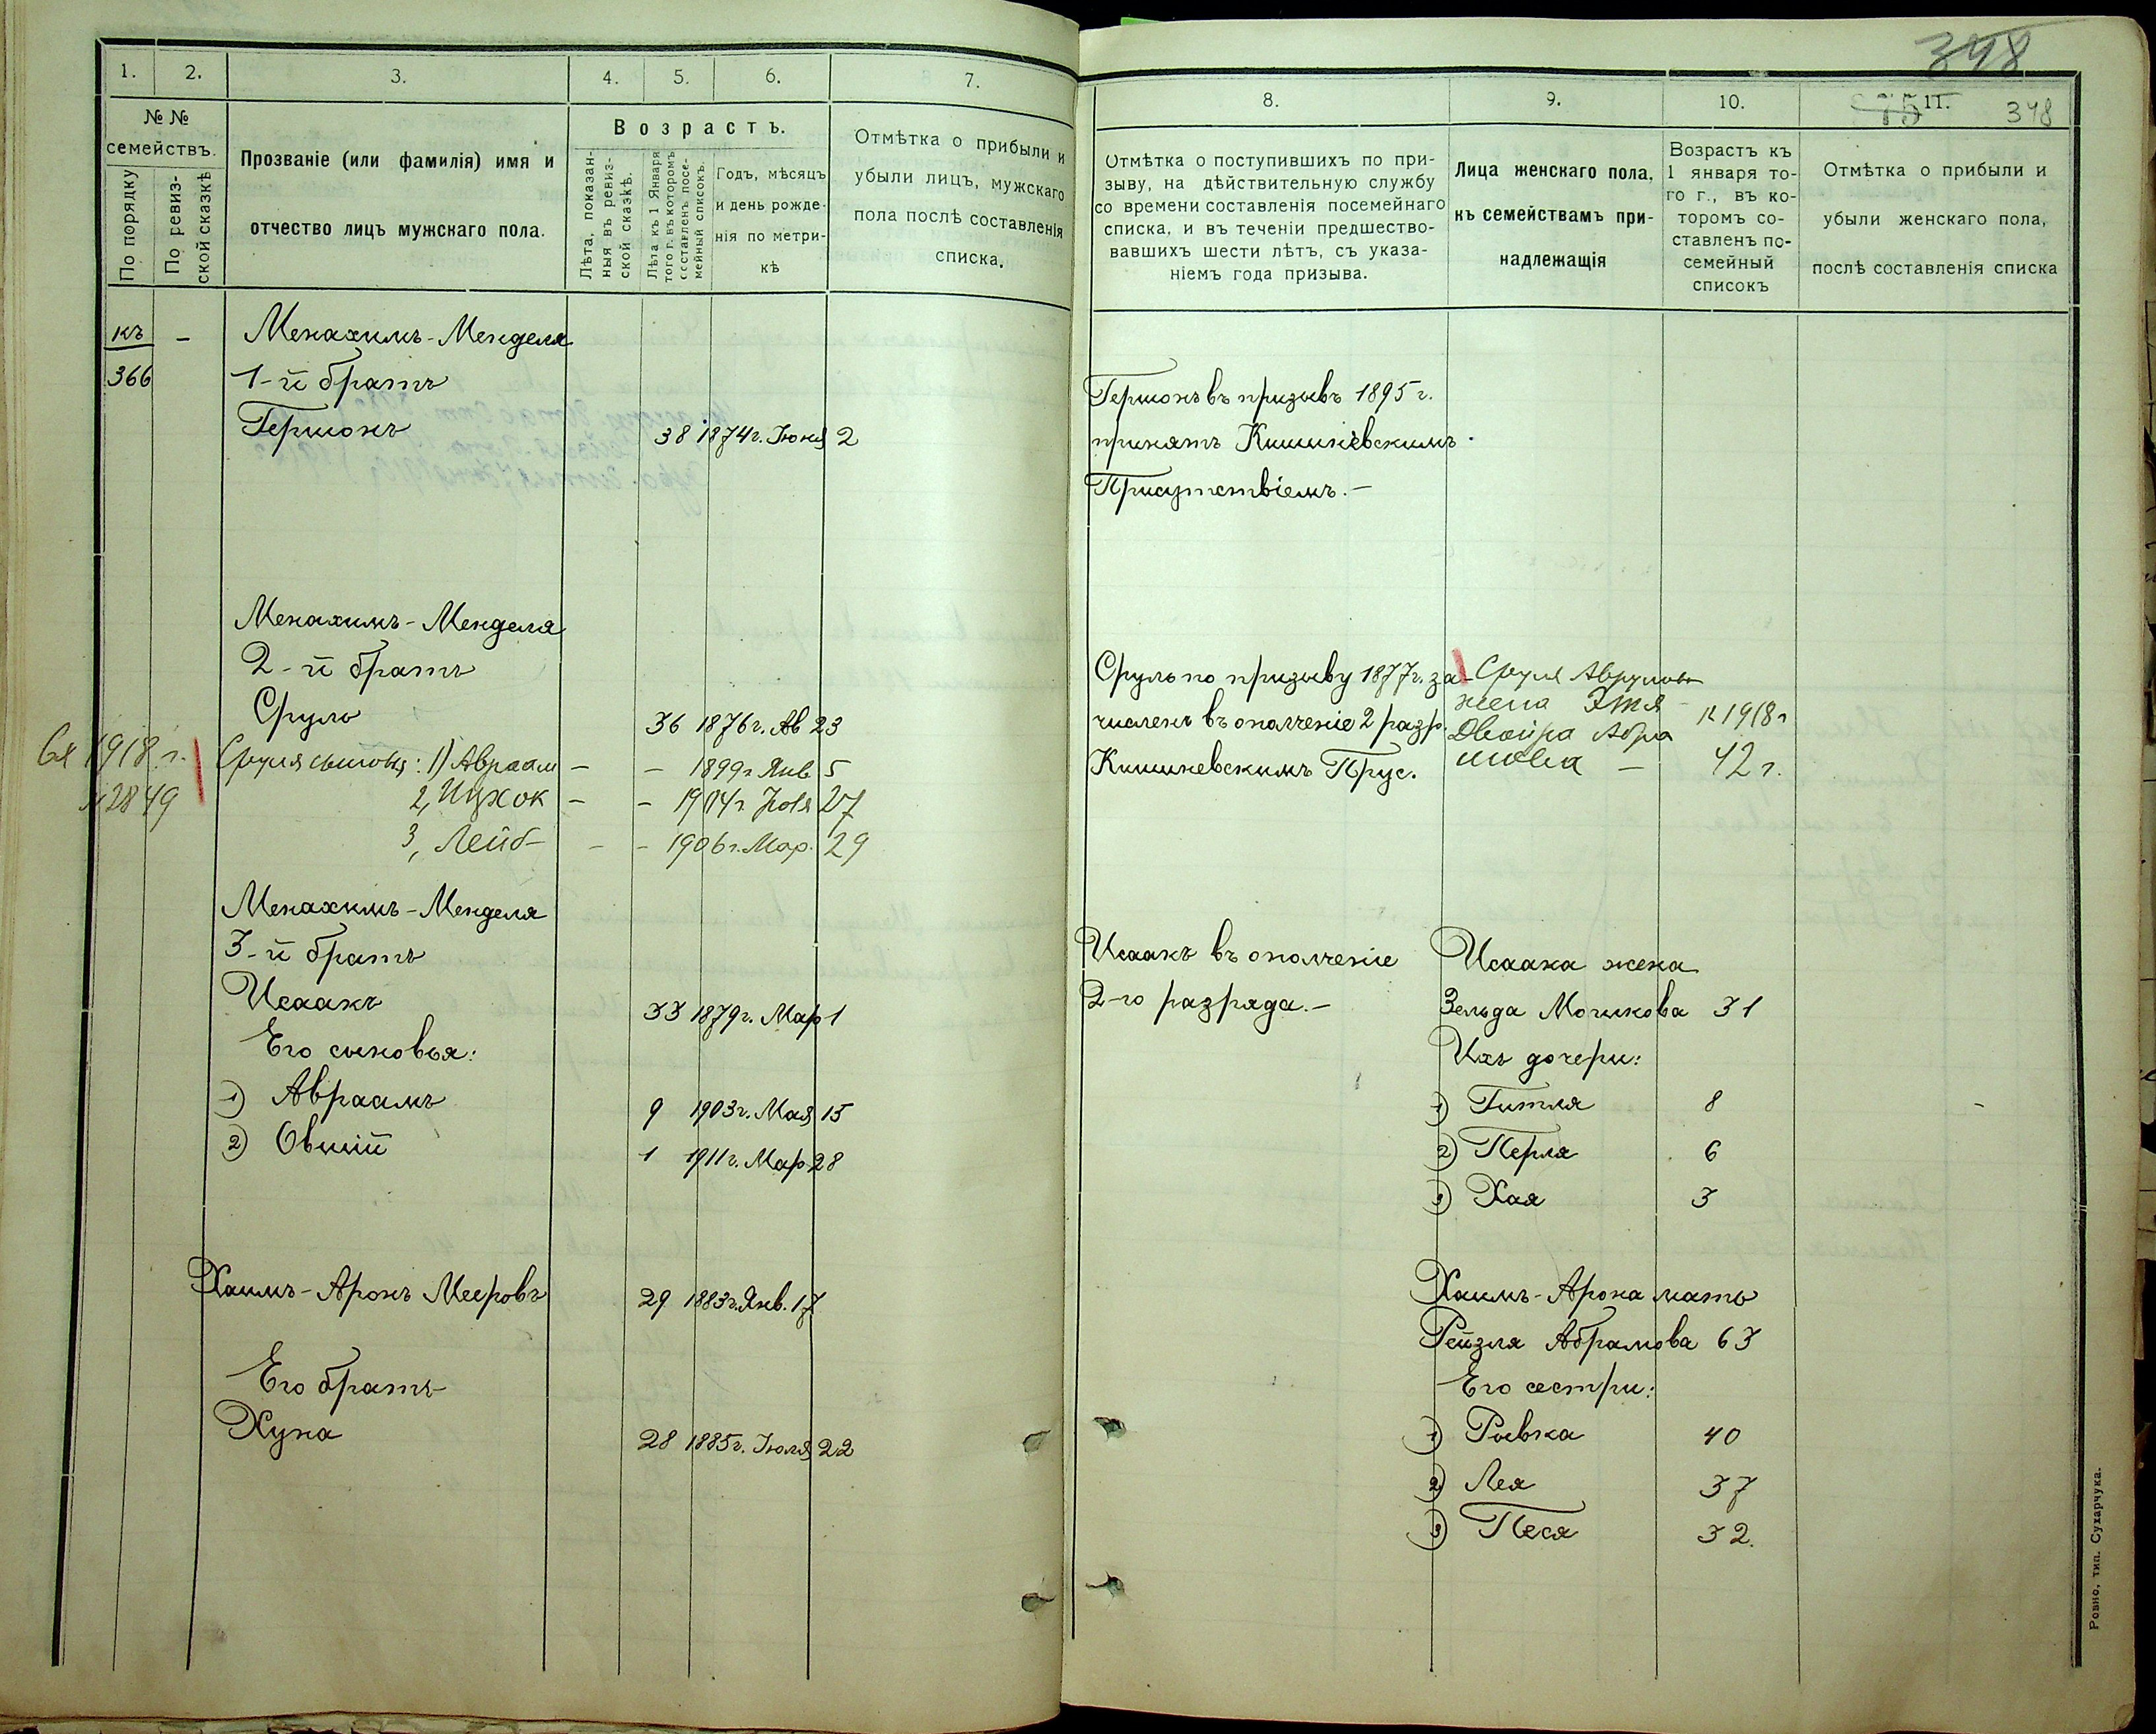 1.
2.
3.
4.
5.
6.
7.
№ №
семействъ.
По порядку
По ревиз-
ской сказкѣ
Прозваніе (или фамилія) имя и
отчество лицъ мужскаго пола.
Возрастъ.
Лѣта, показан-
ныя въ ревиз-
ской сказкѣ.
Лѣта къ 1 Января
того г. въ которомъ
составленъ посе-
мейный списокъ.
Годъ, мѣсяцъ
и день рожде-
нія по метри-
кѣ
Отмѣтка о прибыли и
убыли лицъ, мужскаго
пола послѣ составленія
списка.
къ - Менахимъ-Менделя
366 1-й братъ
Гершонъ 38 1874 г. Іюня 2
Менахимъ-Менделя
2-й братъ
Сруль 36 1876 г. Ав 23
1918 г. Сруля сыновья: 1) Авраам - - 1899 г Янв 5
№ 2849 2, Ицхок - - 1904 г Ноя 27
3, Лейб - - 1906 г. Мар. 29
Менахимъ-Менделя
3-й братъ
Исаакъ 33 1879 г. Мар 1
Его сыновья:
1) Авраамъ 9 1903 г. Мая 15
2) Овшій 1 1911 г. Мар 28
Хаимъ-Аронъ Мееровъ 29 1883 г. Янв. 17
Его братъ
Хуна 28 1885 г. Іюля 22
348
8.
9.
10.
75
11.
348
Отмѣтка о поступившихъ по при-
зыву, на дѣйствительную службу
со времени составленія посемейнаго
списка, и въ теченіи предшество-
вавшихъ шести лѣтъ, съ указа-
ніемъ года призыва.
Лица женскаго пола,
къ семействамъ при-
надлежащія
Возрастъ къ
1 января то-
го г., въ ко-
торомъ со-
ставленъ по-
семейный
списокъ
Отмѣтка о прибыли и
убыли женскаго пола,
послѣ составленія списка
Гершонъ въ призывъ 1895 г.
принятъ Кишиневскимъ
Присутствіемъ.-
Сруль по призыву 1877 г. за-
численъ въ ополченіе 2 разр.
Кишиневскимъ Прус.
Сруля
жена Этя
Двойра Абра к 1918 г
мова - 42 г.
Исаакъ въ ополченіе
2-го разряда.-
Исаака жена
Зельда Мошкова 31
Ихъ дочери:
1) Гитля 8
2) Перля 6
3) Хая 3
Хаимъ-Арона мать
Рейзля Абрамова 63
Его сестри:
1) Ривка 40
2) Лея 37
3) Песя 32.
Ровно, тип. Сухарчука.